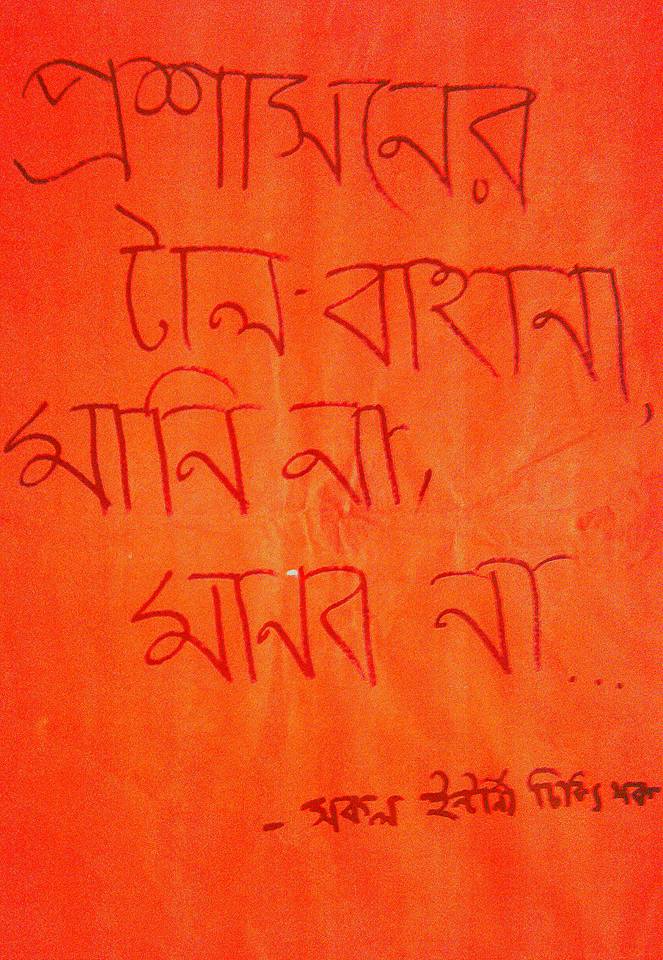 প্রশাসনের
টাল-বাহানা,
মানি না,
মানব না...
- সকল ইন্টার্নী চিকিৎসক